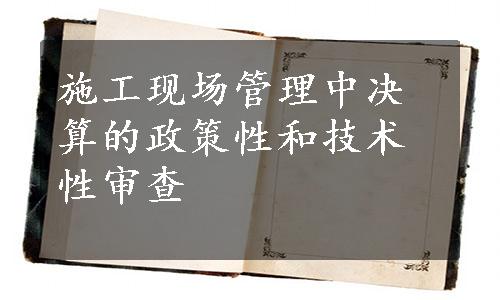 施工现场管理中决
算的政策性和技术
性审查